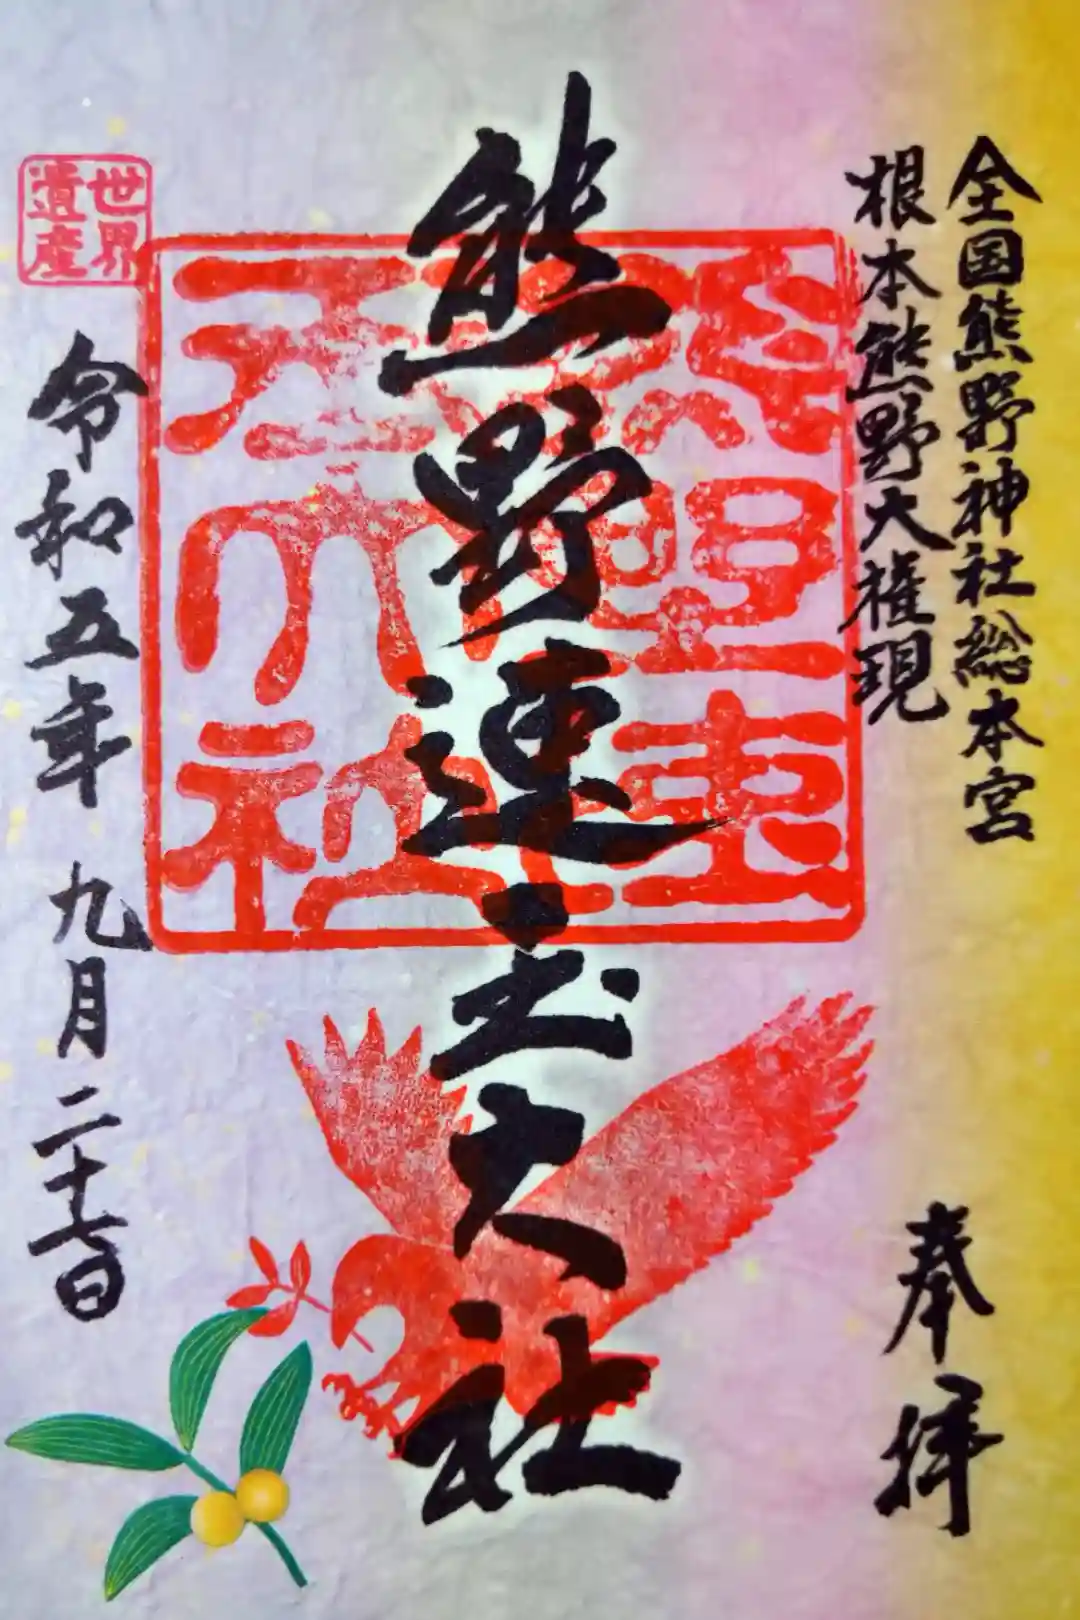 全国熊野神社総本宮
根本熊野大権現
奉拝
熊野速玉大社
世界
遺産
令和五年 九月二十七日